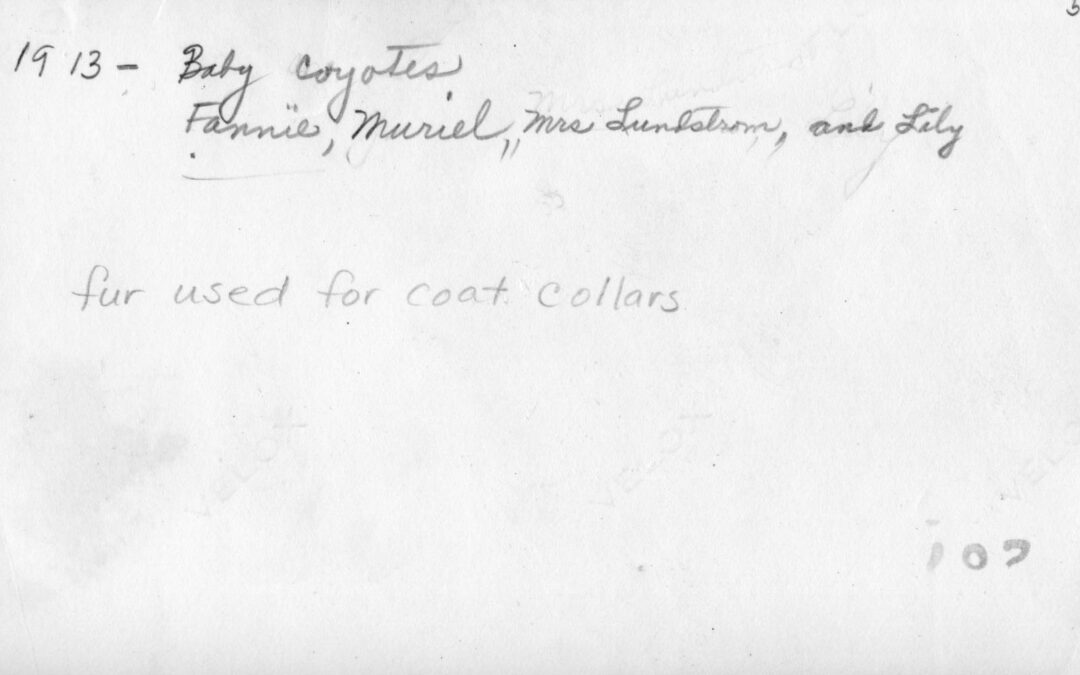 1913 - Baby coyotes
Fannie, Muriel, Mrs Lundstrom, and Lily
fur used for coat collars
VELOX VELOX VELOX
102